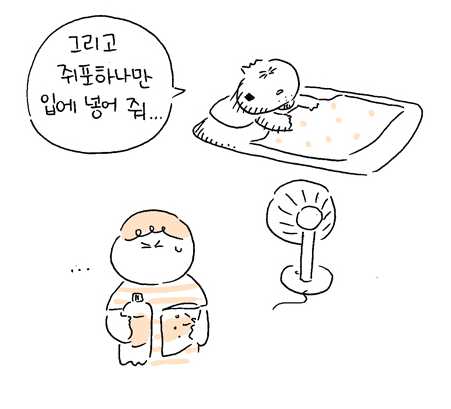 그리고
쥐포하나만
입에 넣어 줘...
...